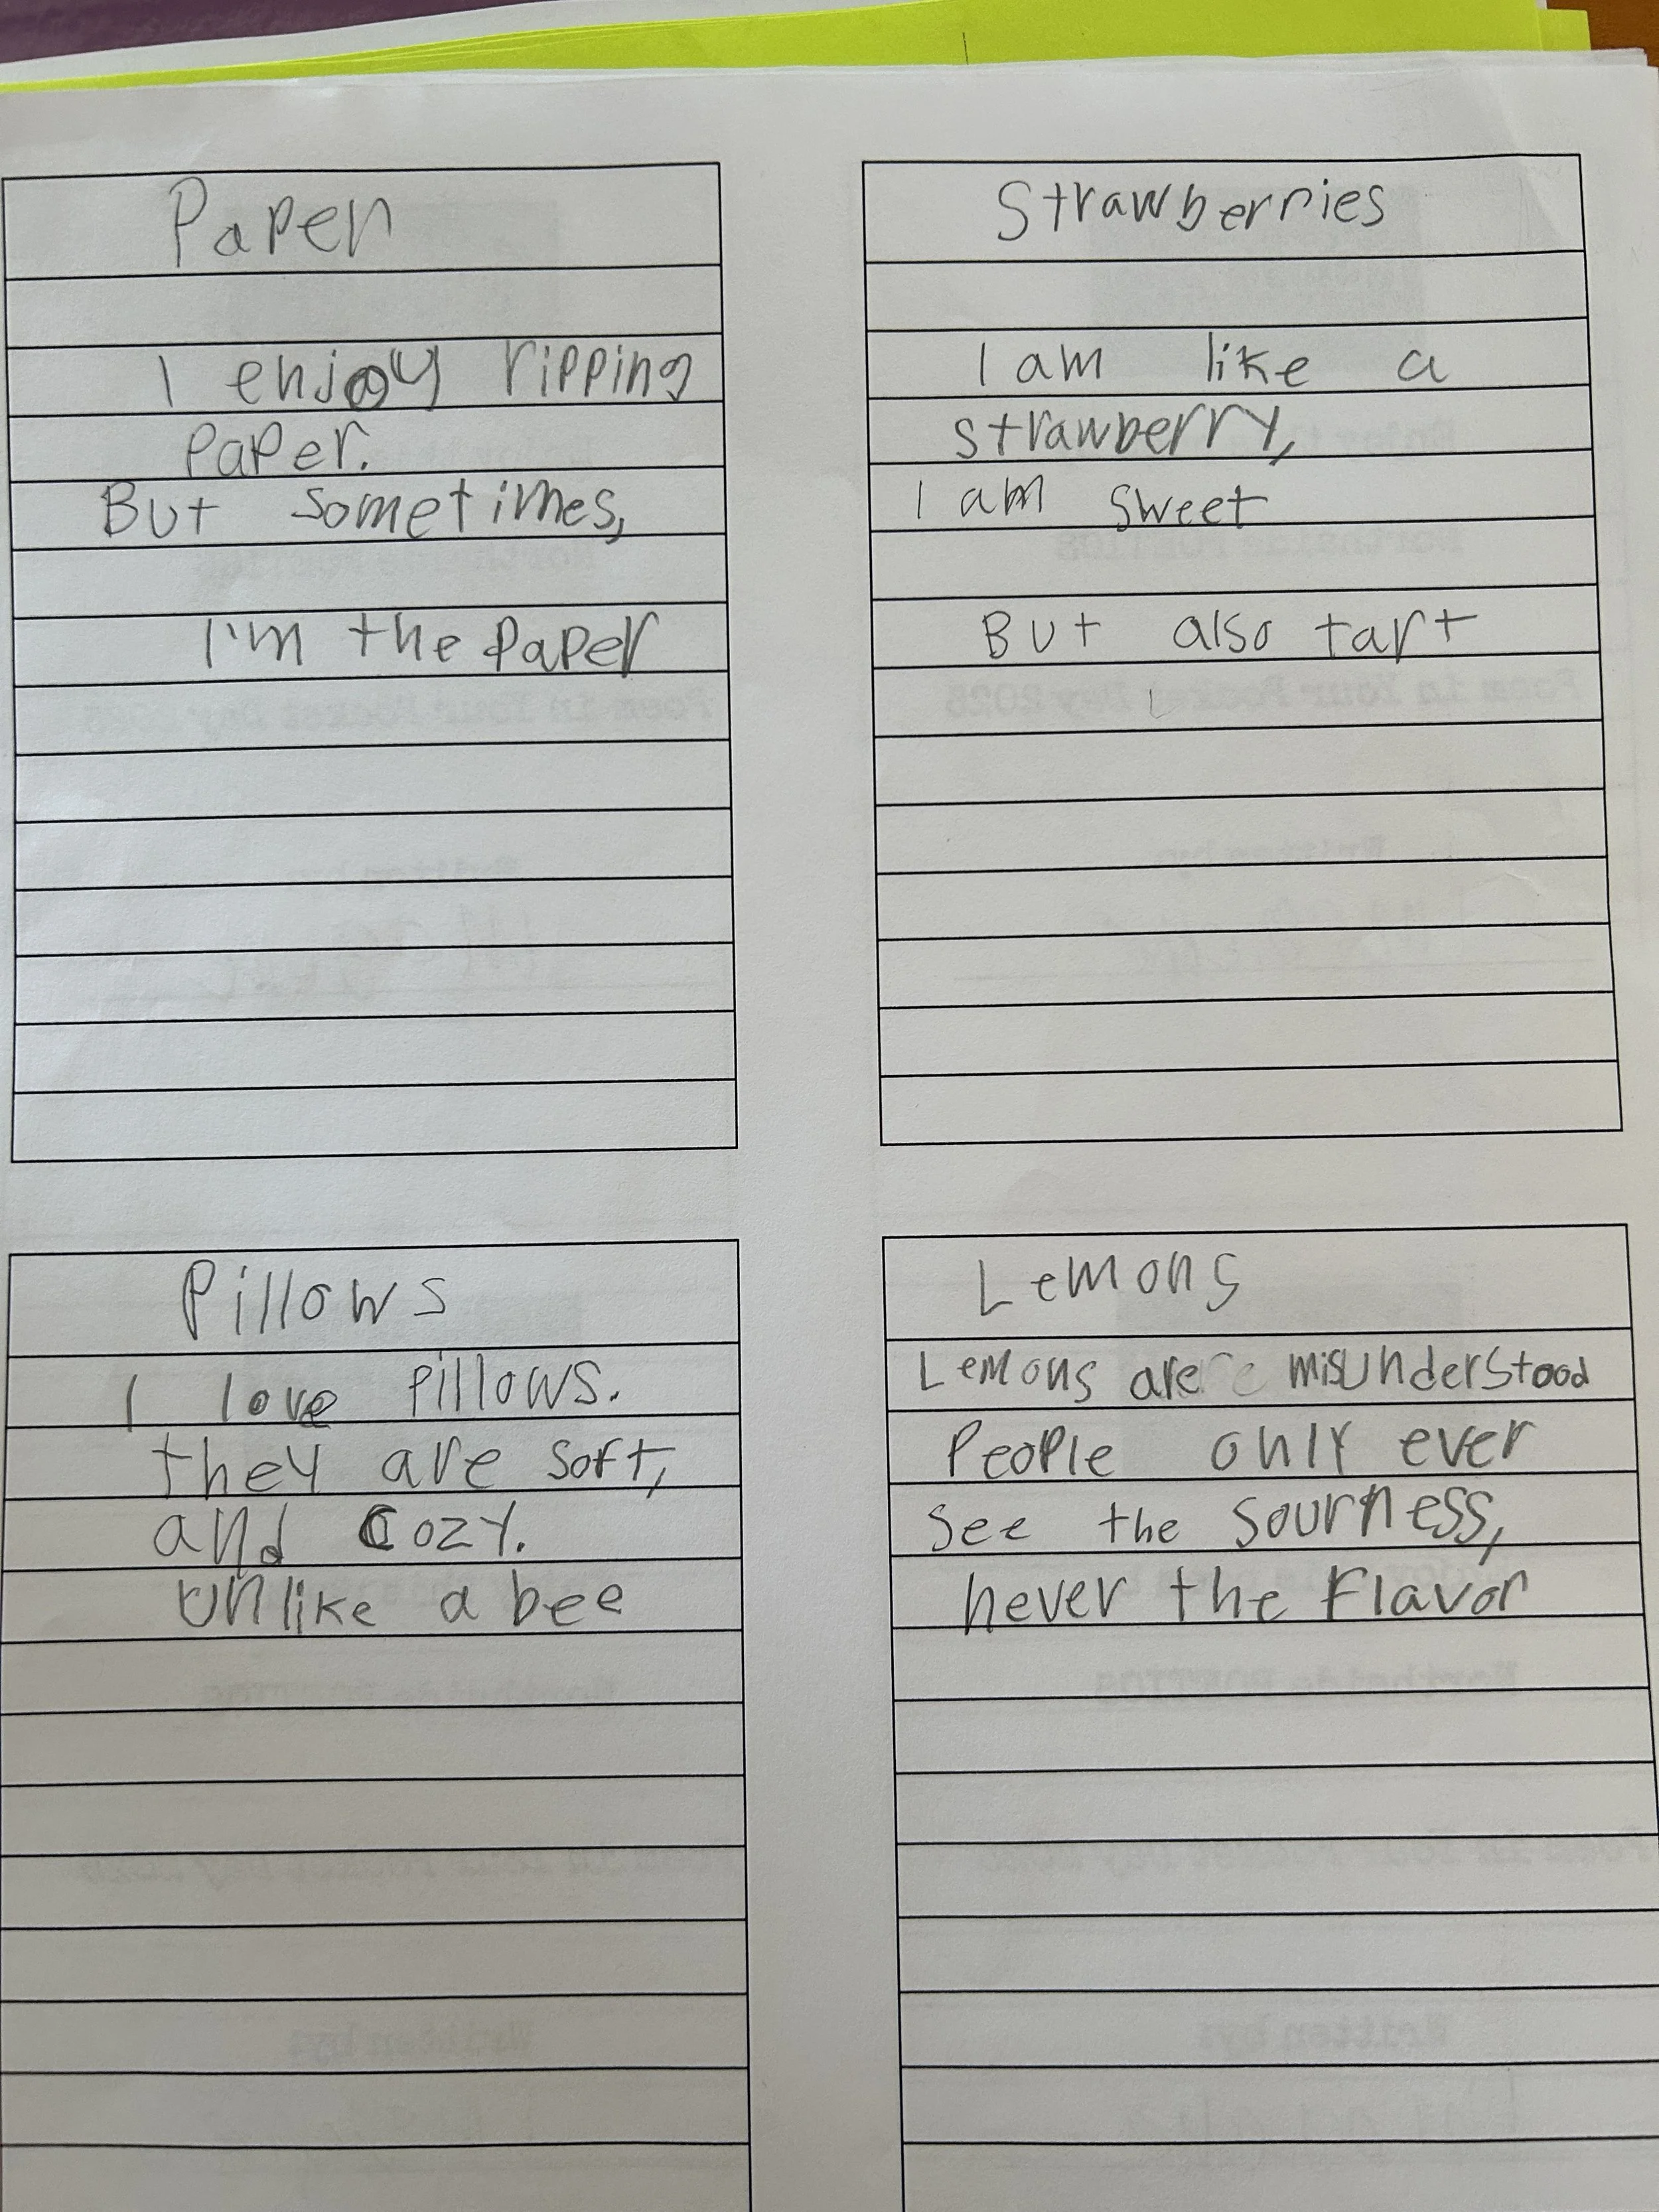 Paper
I enjoy ripping
paper.
But sometimes,
I'm the paper
Strawberries
I am like a
strawberry,
I am sweet
But also tart
Pillows
I love pillows.
they are soft,
and cozy.
unlike a bee
Lemons
Lemons are misunderstood
People only ever
see the sourness,
never the flavor